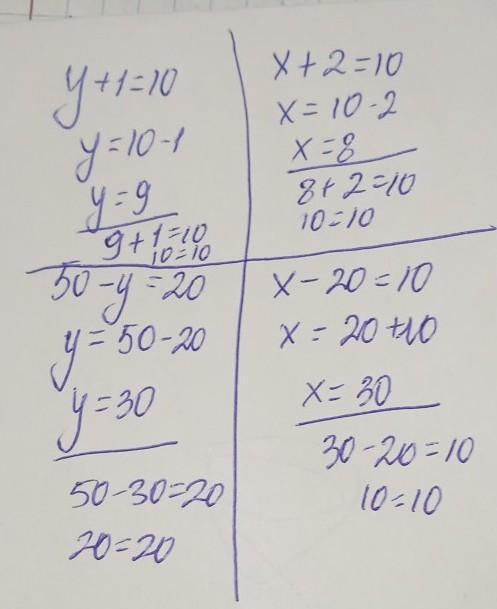 y+1=10
y=10-1
y=9
9+1=10
10=10
x+2=10
x=10-2
x=8
8+2=10
10=10
50-y=20
y=50-20
y=30
50-30=20
20=20
x-20=10
x=20+10
x=30
30-20=10
10=10